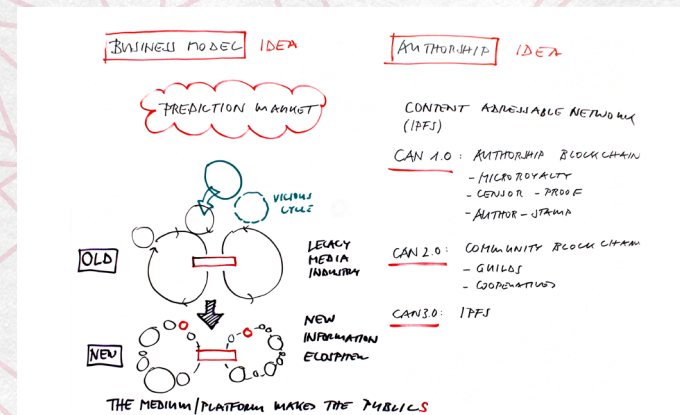 BUSINESS MODEL IDEA
PREDICTION MARKET
VICIOUS
CYCLE
OLD
LEGACY
MEDIA
INDUSTRY
NEW
NEW
INFORMATION
ECOSYSTEM
THE MEDIUM/PLATFORM MAKES THE PUBLICS
AUTHORSHIP IDEA
CONTENT ADRESSABLE NETWORK
(IPFS)
CAN 1.0: AUTHORSHIP BLOCKCHAIN
- MICROROYALTY
- CENSOR - PROOF
- AUTHOR - STAMP
CAN 2.0: COMMUNITY BLOCK CHAIN
- GUILDS
- COOPERATIVES
CAN 3.0: IPFS